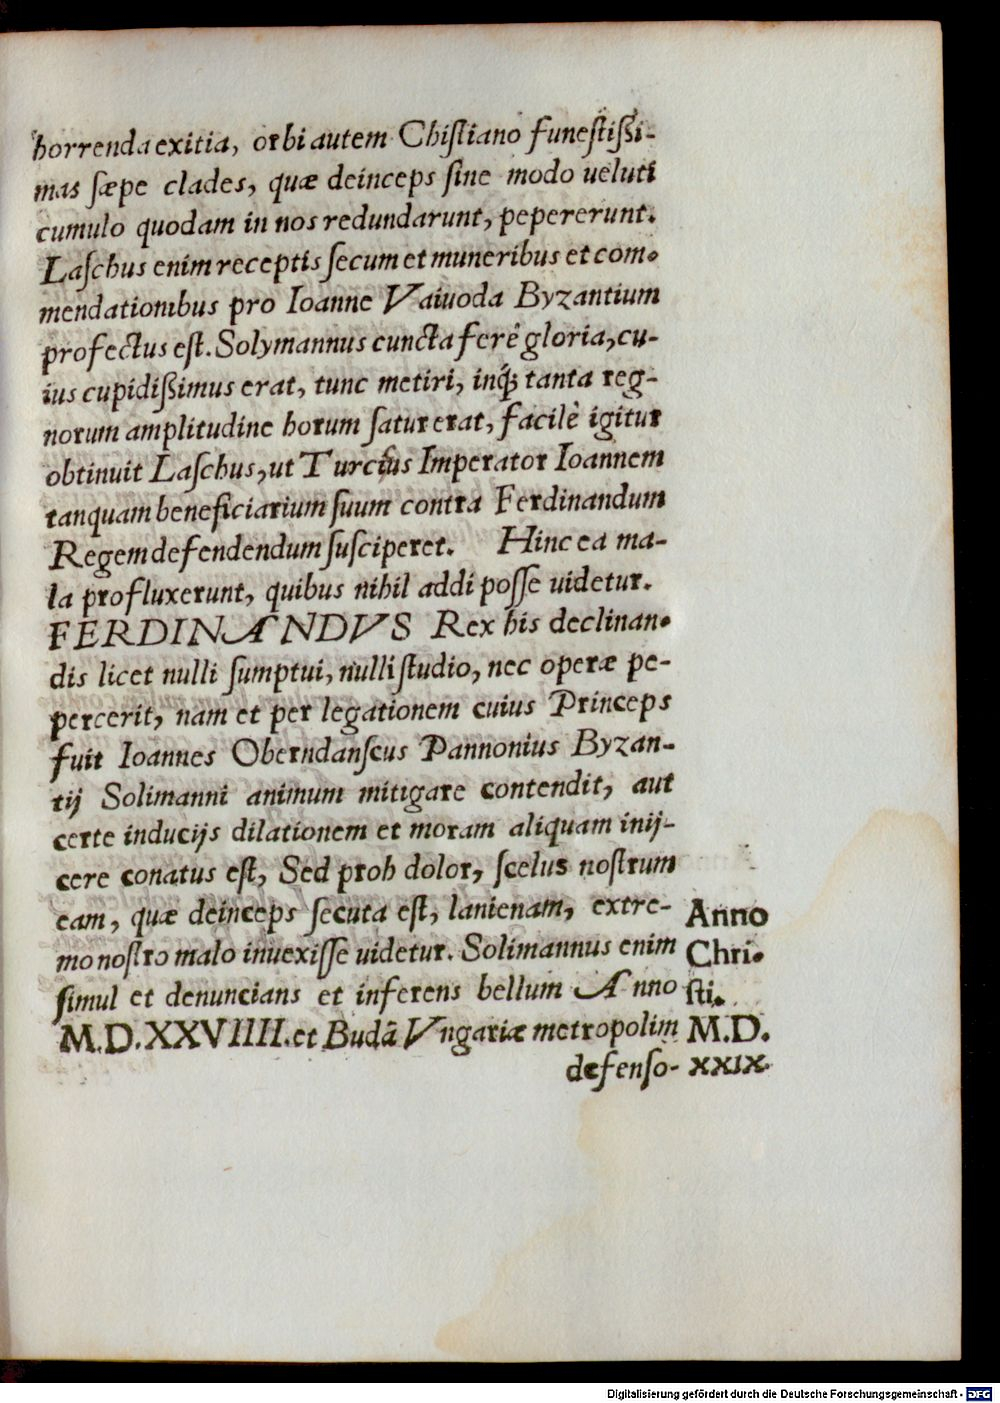 horrenda exitia, orbi autem Chistiano funestißi-
mas sæpe clades, quæ deinceps sine modo ueluti
cumulo quodam in nos redundarunt, pepererunt.
Laschus enim receptis secum et muneribus et com-
mendationibus pro Ioanne Vaiuoda Byzantium
profectus est. Solymannus cuncta ferè gloria, cu-
ius cupidißimus erat, tunc metiri, inq́; tanta reg-
norum amplitudine horum satur erat, facilè igitur
obtinuit Laschus, ut Turcius Imperator Ioannem
tanquam beneficiarium suum contra Ferdinandum
Regem defendendum susciperet. Hinc ea ma-
la profluxerunt, quibus nihil addi posse uidetur.
FERDINANDVS Rex his declinan-
dis licet nulli sumptui, nulli studio, nec operæ pe-
percerit, nam et per legationem cuius Princeps
fuit Ioannes Oberndanscus Pannonius Byzan-
tij Solimanni animum mitigare contendit, aut
certe inducijs dilationem et moram aliquam inij-
cere conatus est, Sed proh dolor, scelus nostrum
eam, quæ deinceps secuta est, lanienam, extre-
mo nostro malo inuexisse uidetur. Solimannus enim
simul et denuncians et inferens bellum Anno
M.D.XXVIIII. et Budã Vngariæ metropolim
defenso-
Anno
Chri-
sti.
M.D.
XXIX.
Digitalisierung gefördert durch die Deutsche Forschungsgemeinschaft - DFG